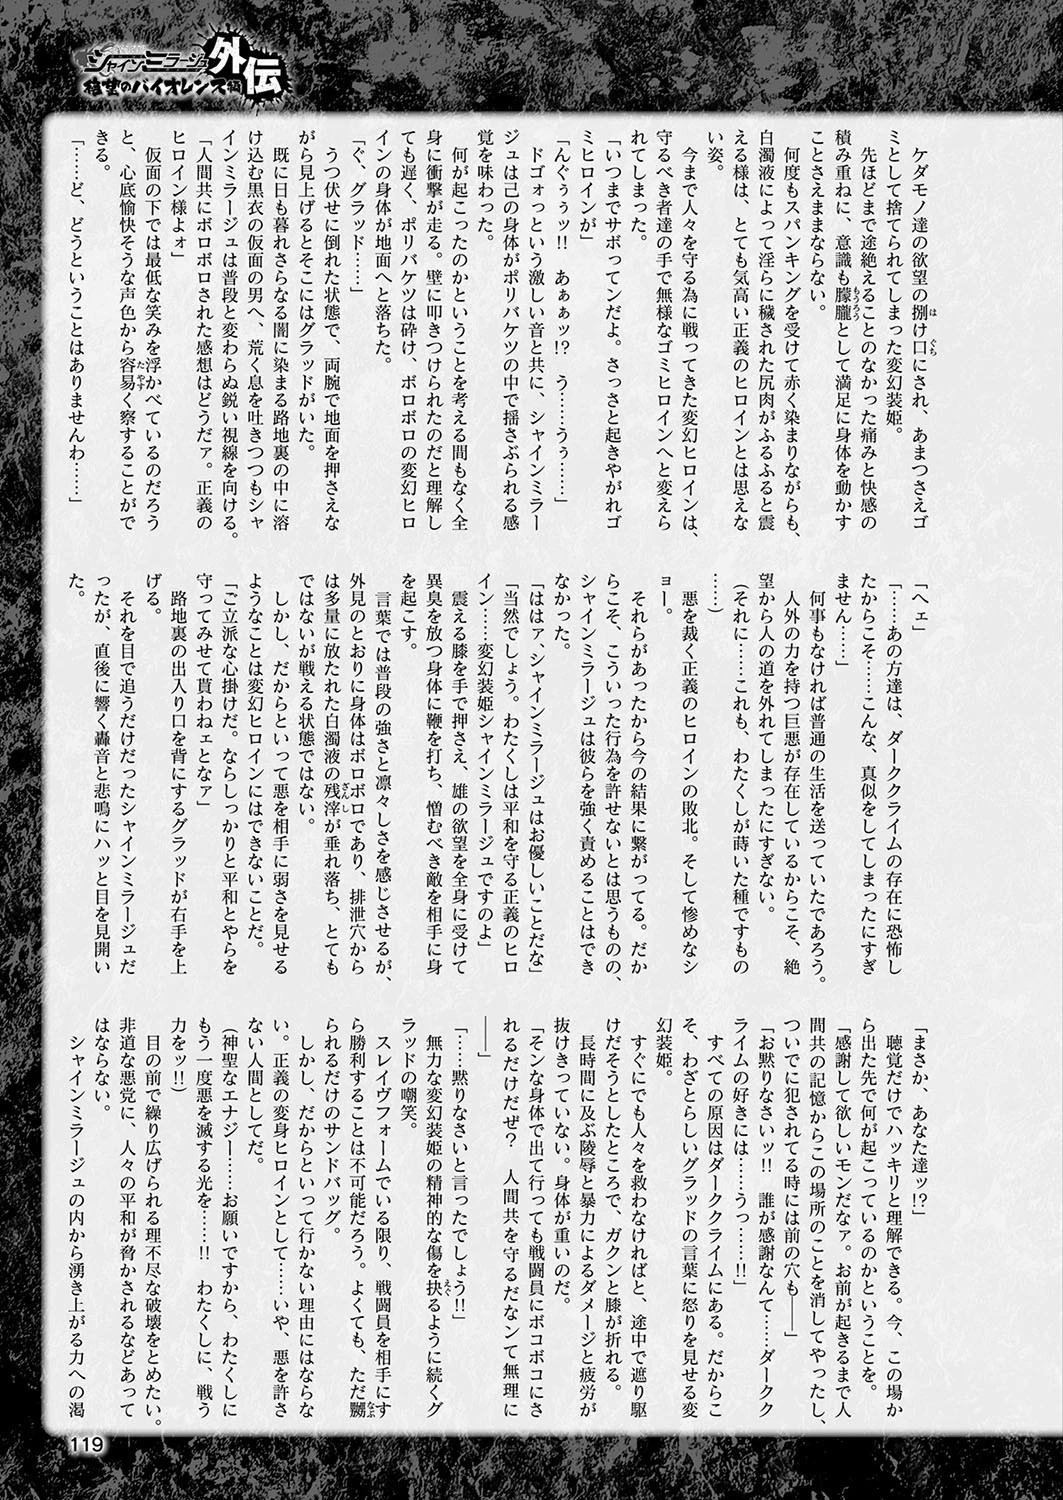 シャインミラージュ
外伝
絶望のバイオレンス編
　ケダモノ達の欲望の捌け口にされ、あまつさえゴ
ミとして捨てられてしまった変幻装姫。
　先ほどまで途絶えることのなかった痛みと快感の
積み重ねに、意識も朦朧として満足に身体を動かす
ことさえままならない。
　何度もスパンキングを受けて赤く染まりながらも、
白濁液によって淫らに穢された尻肉がふるふると震
える様は、とても気高い正義のヒロインとは思えな
い姿。
　今まで人々を守る為に戦ってきた変幻ヒロインは、
守るべき者達の手で無様なゴミヒロインへと変えら
れてしまった。
「いつまでサボってンだよ。さっさと起きやがれゴ
ミヒロインが」
「んぐぅぅッ!!　あぁぁッ!?　う……うぅ……」
　ドゴォっという激しい音と共に、シャインミラー
ジュは己の身体がポリバケツの中で揺さぶられる感
覚を味わった。
　何が起こったのかということを考える間もなく全
身に衝撃が走る。壁に叩きつけられたのだと理解し
ても遅く、ポリバケツは砕け、ボロボロの変幻ヒロ
インの身体が地面へと落ちた。
「ぐ、グラッド……」
　うつ伏せに倒れた状態で、両腕で地面を押さえな
がら見上げるとそこにはグラッドがいた。
　既に日も暮れさらなる闇に染まる路地裏の中に溶
け込む黒衣の仮面の男へ、荒く息を吐きつつもシャ
インミラージュは普段と変わらぬ鋭い視線を向ける。
「人間共にボロボロされた感想はどうだァ。正義の
ヒロイン様よォ」
　仮面の下では最低な笑みを浮かべているのだろう
と、心底愉快そうな声色から容易く察することがで
きる。
「……ど、どうということはありませんわ……」
「ヘェ」
「……あの方達は、ダーククライムの存在に恐怖し
たからこそ……こんな、真似をしてしまったにすぎ
ません……」
　何事もなければ普通の生活を送っていたであろう。
　人外の力を持つ巨悪が存在しているからこそ、絶
望から人の道を外れてしまったにすぎない。
（それに……これも、わたくしが蒔いた種ですもの
……）
　悪を裁く正義のヒロインの敗北。そして惨めなシ
ョー。
　それらがあったから今の結果に繋がってる。だか
らこそ、こういった行為を許せないとは思うものの、
シャインミラージュは彼らを強く責めることはでき
なかった。
「ははァ、シャインミラージュはお優しいことだな」
「当然でしょう。わたくしは平和を守る正義のヒロ
イン……変幻装姫シャインミラージュですのよ」
　震える膝を手で押さえ、雄の欲望を全身に受けて
異臭を放つ身体に鞭を打ち、憎むべき敵を相手に身
を起こす。
　言葉では普段の強さと凛々しさを感じさせるが、
外見のとおりに身体はボロボロであり、排泄穴から
は多量に放たれた白濁液の残滓が垂れ落ち、とても
ではないが戦える状態ではない。
　しかし、だからといって悪を相手に弱さを見せる
ようなことは変幻ヒロインにはできないことだ。
「ご立派な心掛けだ。ならしっかりと平和とやらを
守ってみせて貰わねェとなァ」
　路地裏の出入り口を背にするグラッドが右手を上
げる。
　それを目で追うだけだったシャインミラージュだ
ったが、直後に響く轟音と悲鳴にハッと目を見開い
た。
「まさか、あなた達ッ!?」
　聴覚だけでハッキリと理解できる。今、この場か
ら出た先で何が起こっているのかということを。
「感謝して欲しいモンだなァ。お前が起きるまで人
間共の記憶からこの場所のことを消してやったし、
ついでに犯されてる時には前の穴も――」
「お黙りなさいッ!!　誰が感謝なんて……ダークク
ライムの好きには……うっ……!!」
　すべての原因はダーククライムにある。だからこ
そ、わざとらしいグラッドの言葉に怒りを見せる変
幻装姫。
　すぐにでも人々を救わなければと、途中で遮り駆
けだそうとしたところで、ガクンと膝が折れる。
　長時間に及ぶ陵辱と暴力によるダメージと疲労が
抜けきっていない。身体が重いのだ。
「そンな身体で出て行っても戦闘員にボコボコにさ
れるだけだぜ？　人間共を守るだなンて無理に
――」
「……黙りなさいと言ったでしょう!!」
　無力な変幻装姫の精神的な傷を抉るように続くグ
ラッドの嘲笑。
　スレイヴフォームでいる限り、戦闘員を相手にす
ら勝利することは不可能だろう。よくても、ただ嬲
られるだけのサンドバッグ。
　しかし、だからといって行かない理由にはならな
い。正義の変身ヒロインとして……いや、悪を許さ
ない人間としてだ。
（神聖なエナジー……お願いですから、わたくしに
もう一度悪を滅する光を……!!　わたくしに、戦う
力をッ!!）
　目の前で繰り広げられる理不尽な破壊をとめたい。
非道な悪党に、人々の平和が脅かされるなどあって
はならない。
　シャインミラージュの内から湧き上がる力への渇
119